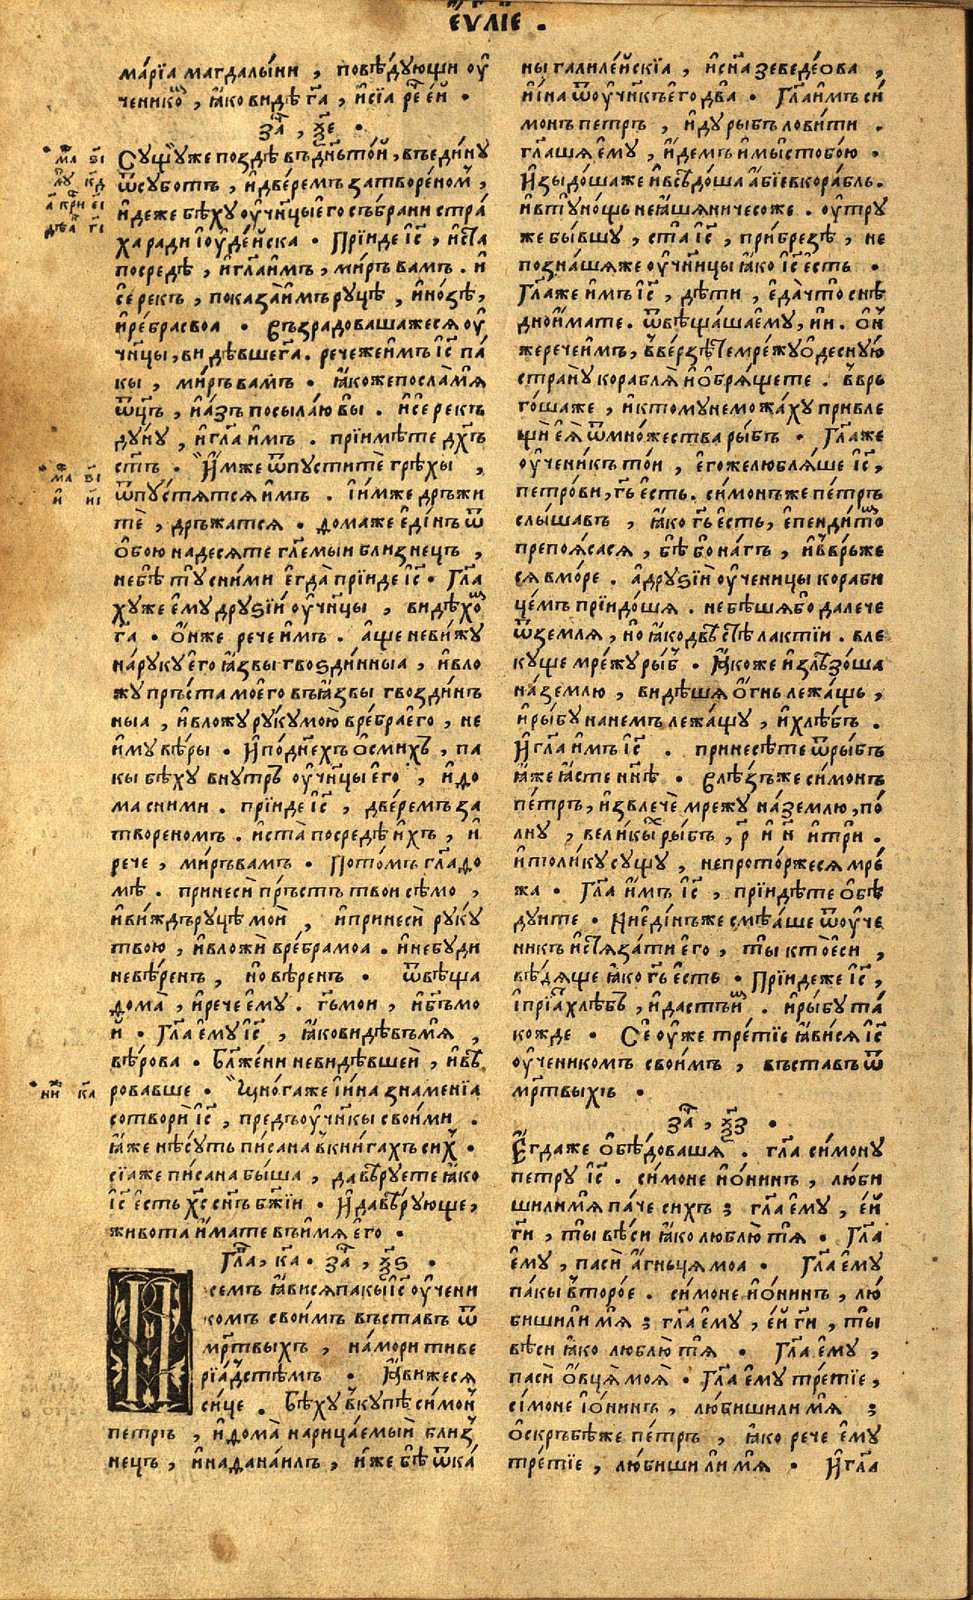 ЕѴЛЇЕ .
марїа магдалыни , повѣдующи оу
ченико , ꙗко видѣ га , и сїа ре ей .
за , ѯе .
Сущу же поздѣ въ днь той , въ едину
ѿ суботъ , и дверемъ затвореном ,
идеже бѣху оучнцы его събрани стра
ха ради іоудейска . Прїиде іс , и ста
посредѣ , и гла имъ , миръ вамъ . и
се рекъ , показа имъ руцѣ , и нозѣ ,
и ребра своа . Възрадовашажеся оу
чнцы , видѣвше га . рече же имъ іс па
кы , миръ вамъ . ꙗкоже посла мя
ѿцъ , и азъ посылаю вы . и се рекъ
дуну , и гла имъ . прїимѣте дхъ
стъ . Имже ѿпустите грѣхы ,
ѿпустятся имъ . і имже дръжи
те , дръжатся . Дома же единъ ѿ
обоюнадесяте глемыи близнецъ ,
не бѣ ту с ними егда прїиде іс . Гла
ху же ему друѕїи оучнцы , видѣхо
га . Онже рече имъ . аще не вижу
на руку его ꙗзвы гвоздинныа , и вло
жу пръста моего въ ꙗзвы гвоздин
ныа , и вложу руку мою в ребра его , не
иму вѣры . И по днехъ осмихъ , па
кы бѣху внутрь оучнцы его , и до
ма с ними . прїиде іс , дверемъ за
твореномъ . и ста посредѣ ихъ , и
рече , миръ вамъ . Потомъ гла до
мѣ . принеси пръстъ твои сѣмо ,
и виждь руцѣ мои , и принеси руку
твою , и вложи в ребра моа . и не буди
невѣренъ , но вѣренъ . ѿвѣща
дома , и рече ему . гь мои , и бгъ мо
и . Гла ему іс , ꙗко видѣвъ мя ,
вѣрова . Блжени невидѣвшеи , и вѣ
ровавше . Многа же и ина знаменїа
сотвори іс , предъ оучнкы своими .
ꙗже нѣсуть писана в книгахъ сих .
сїа же писана быша , да вѣруете ꙗко
іс есть хс снъ бжїи . И да вѣрующе ,
живота имате въ имя его .
Гла , ка . за , ѯѕ .
семъ ꙗвися пакы іс оучени
комъ своимъ въставъ ѿ
мртвыхъ , на мори тиве
рїадстѣмъ . Ꙗвижеся
сице . Бѣху вкупѣ симон
петръ , и дома нарицаемый близ
нецъ , и наданаилъ , иже бѣ ѿ ка
ма ві
лу кд
а кри еі
дѣа гі
ма ві
и иі
ни ка
ны галилейскїа , и сна зеведеова ,
и ина ѿ оучнкъ его два . Гла имъ си
монъ петръ , иду рыбъ ловити .
глаша ему , идемъ и мы с тобою .
Изыдоша же и всѣдоша абїе в корабль .
и в ту нощь не ꙗша ничесоже . оутру
же бывшу , ста іс , при брезѣ , не
познаша же оучнцы ꙗко іс есть .
Гла же имъ іс , дѣти , еда что снѣ
дно имате . ѿвѣщаша ему , ни . он
же рече имъ , вверзѣте мрежу одесную
страну корабля и обрящете . ввръ
гоша же , и ктому не можаху привле
щи ея ѿ множества рыбъ . Гла же
оученикъ тои , егоже любляше іс ,
петрови , гь есть . симонъ же петръ
слышавъ , ꙗко гь есть , епендито
препоясася , бѣ бо нагъ , и ввръже
ся в море . а друѕїи оученицы кораби
цемъ прїидоша . не бѣша бо далече
ѿ земля , но ꙗко двѣстѣ лактїи . вле
куще мрежу рыб . Ꙗкоже излѣзоша
на землю , видѣша огнь лежащь ,
и рыбу на немъ лежащу , и хлѣбъ .
И гла имъ іс . принесѣте ѿ рыбъ
ꙗже ꙗсте ннѣ . Влѣзъ же симонъ
петръ , извлече мрежу на землю , по
лну , великы рыбъ , р и н и три .
и толику сущу , не проторжеся мре
жа . Гла имъ іс , прїидѣте обѣ
дуите . Ни единъ же смѣаше ѿ оуче
никъ истязати его , ты кто еси ,
вѣдяще ꙗко гь есть . Прїиде же іс ,
і прїа хлѣбъ , и дастъ и . и рыбу та
кожде . Се оуже третїе ꙗвися іс
оученикомъ своимъ , въставъ ѿ
мртвыхъ .
за , ѯз .
Егда же обѣдоваша . гла симону
петру іс . симоне ионинъ , люби
ши ли мя паче сихъ ; гла ему , ей
ги , ты вѣси ꙗко люблю тя . Гла
ему , паси агньця моа . Гла ему
пакы второе . симоне ионинъ , лю
биши ли мя ; гла ему , ей ги , ты
вѣси ꙗко люблю тя . Гла ему ,
паси овця моя . Гла ему третїе ,
сімоне іонинъ , любиши ли мя ;
оскръбѣ же петръ , ꙗко рече ему
третїе , любиши ли мя . И гла